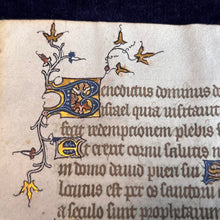 Benedictus dominus d
israel quia visitavit
fecit redempcionem plebis
Et erexit cornu salutis n
in domo david pueri sui
Locutus est per os sanctoru
a seculo sunt prophetaru